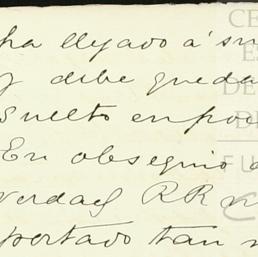 ha llegado á su
y debe queda
suelto en poc
En obsequio a
verdad RR n
portado tan
CE
ES
DE
D
FU